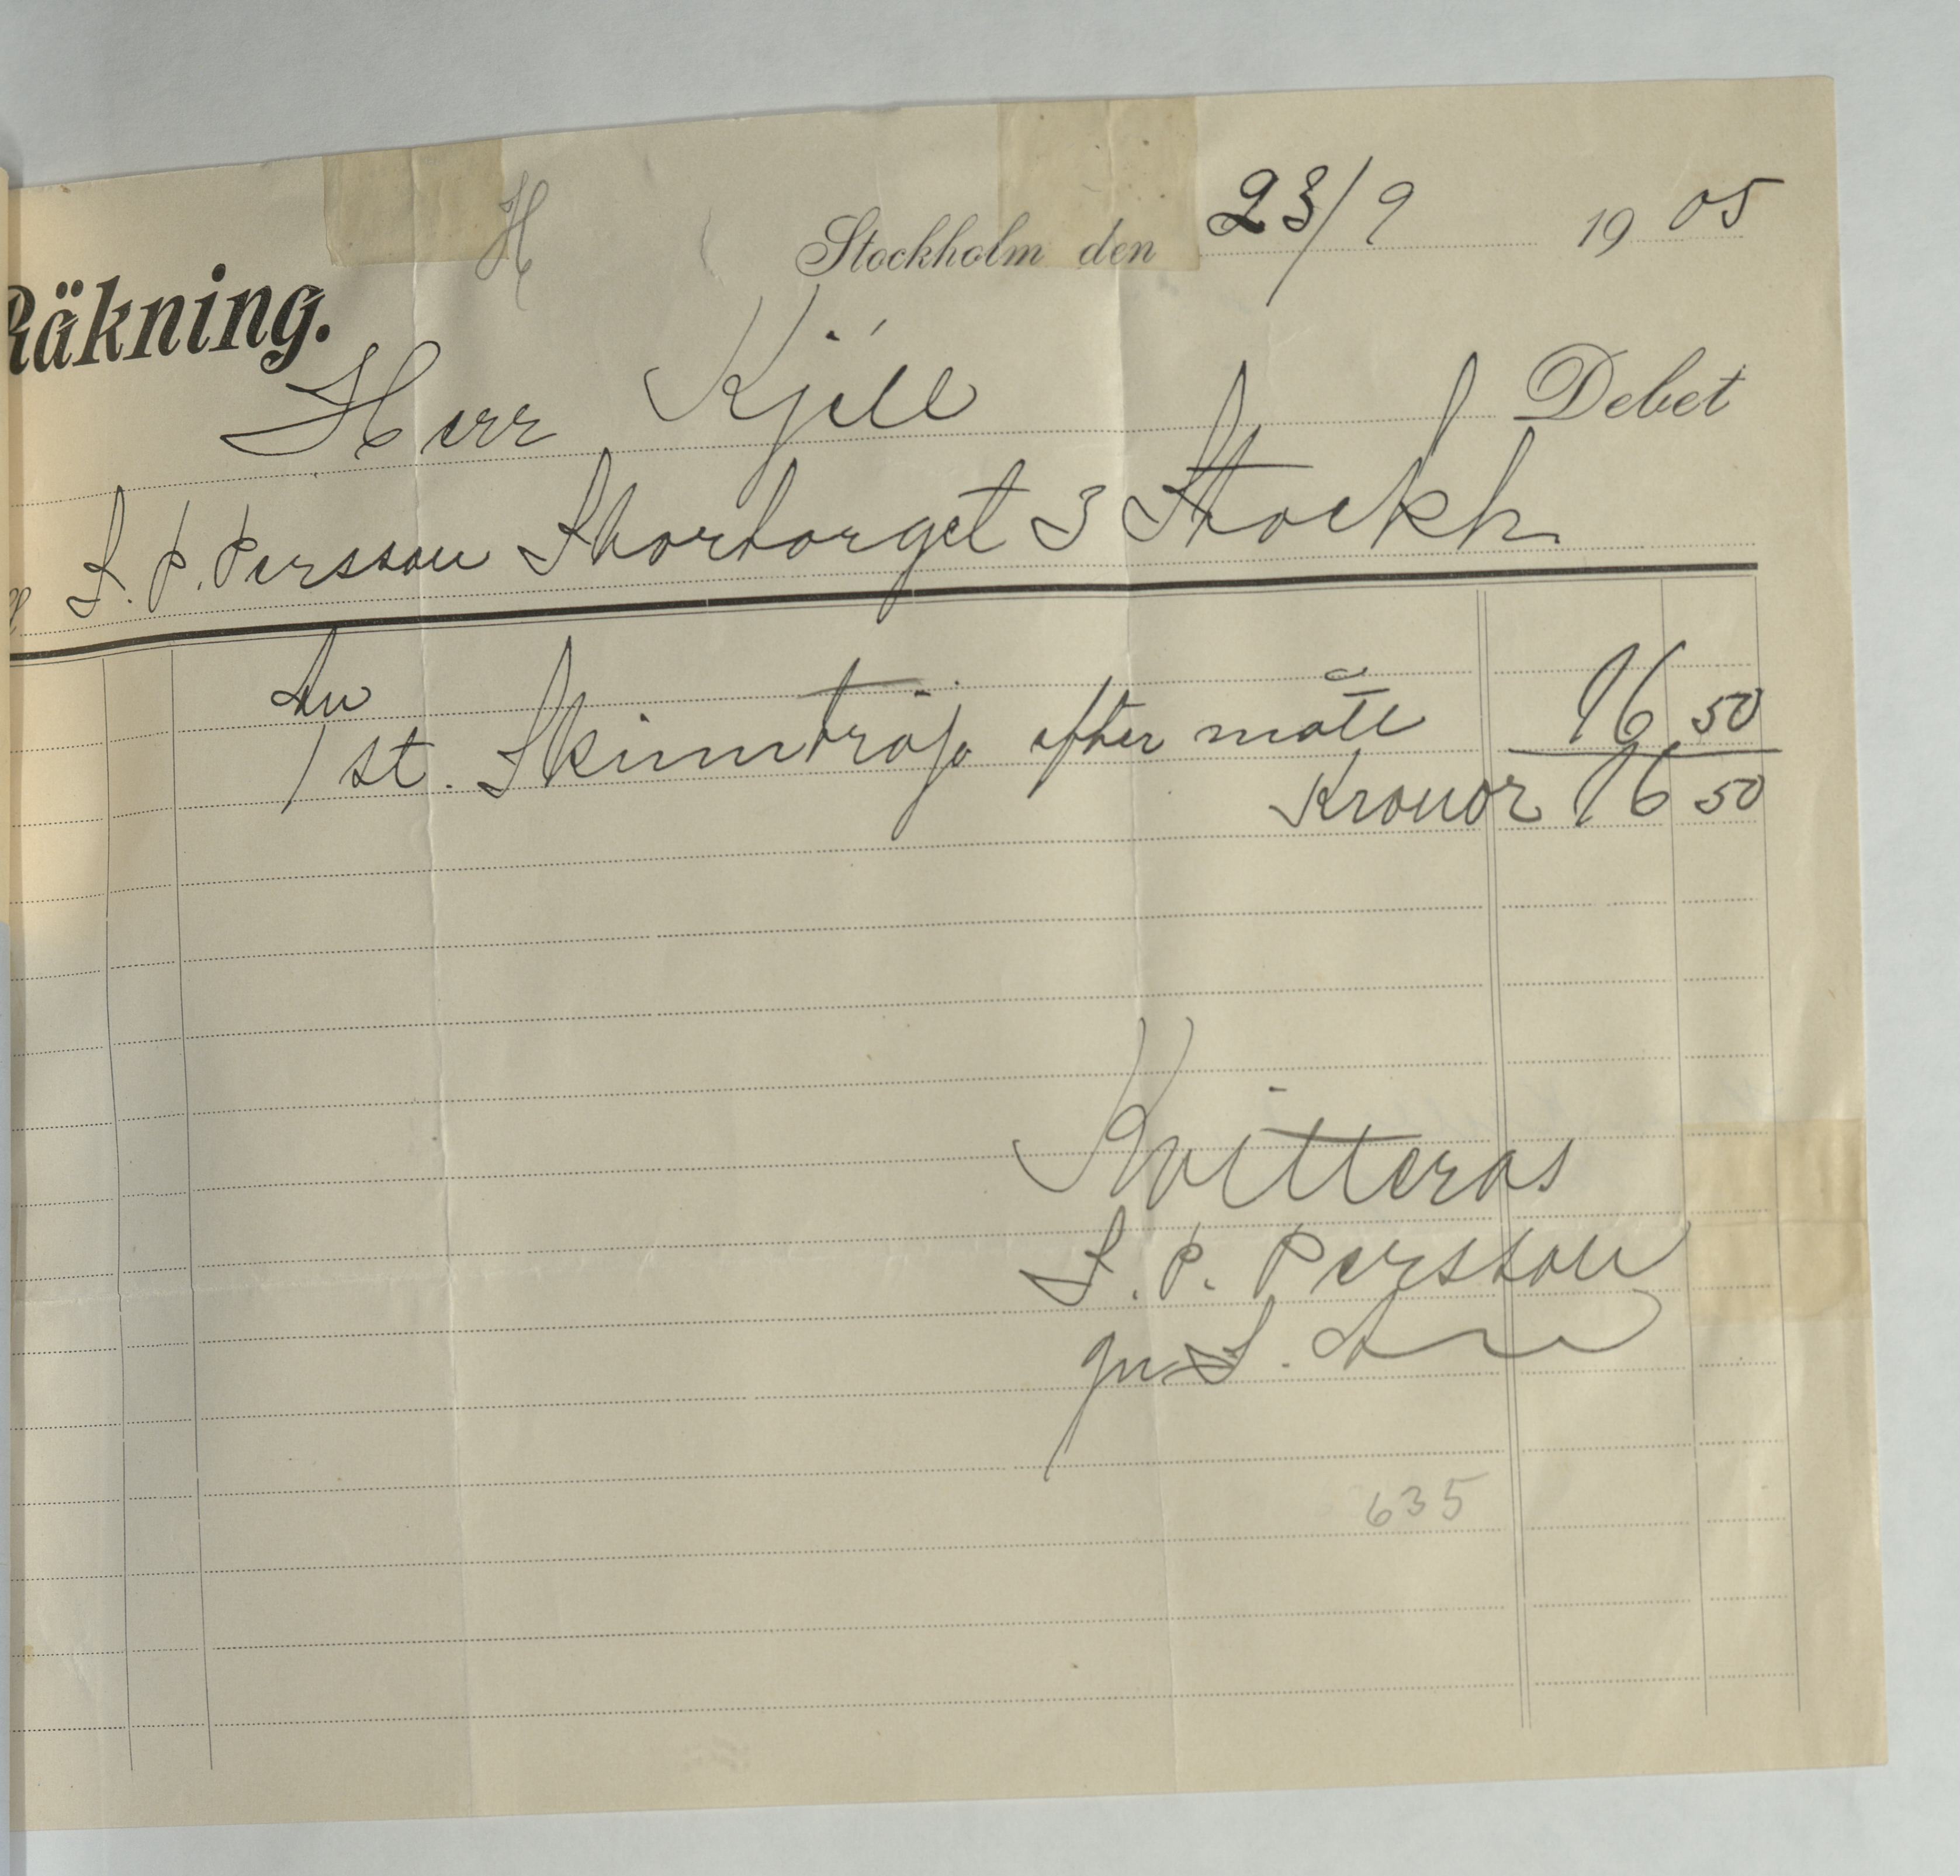 H
Stockholm den 23/9 1905
Räkning.
Herr Kjell Debet
S. P. Persson Stortorget 3 Stockh.
An
1 st. Skinntröja efter mått 16 50
Kronor 16 50
Kvitteras
S. P. Persson
gm S.
635